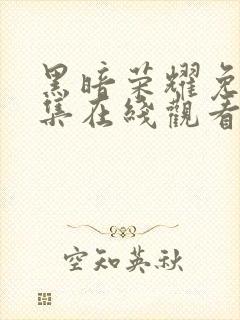 黑暗荣耀免
集在线觀看
空知英秋